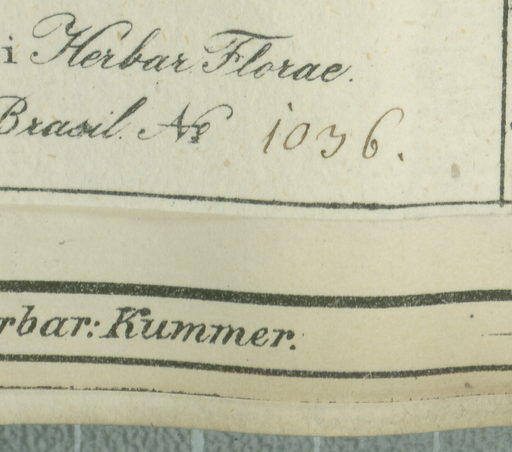 i Herbar. Florae.
Brasil. No 1036.
rbar: Kummer.